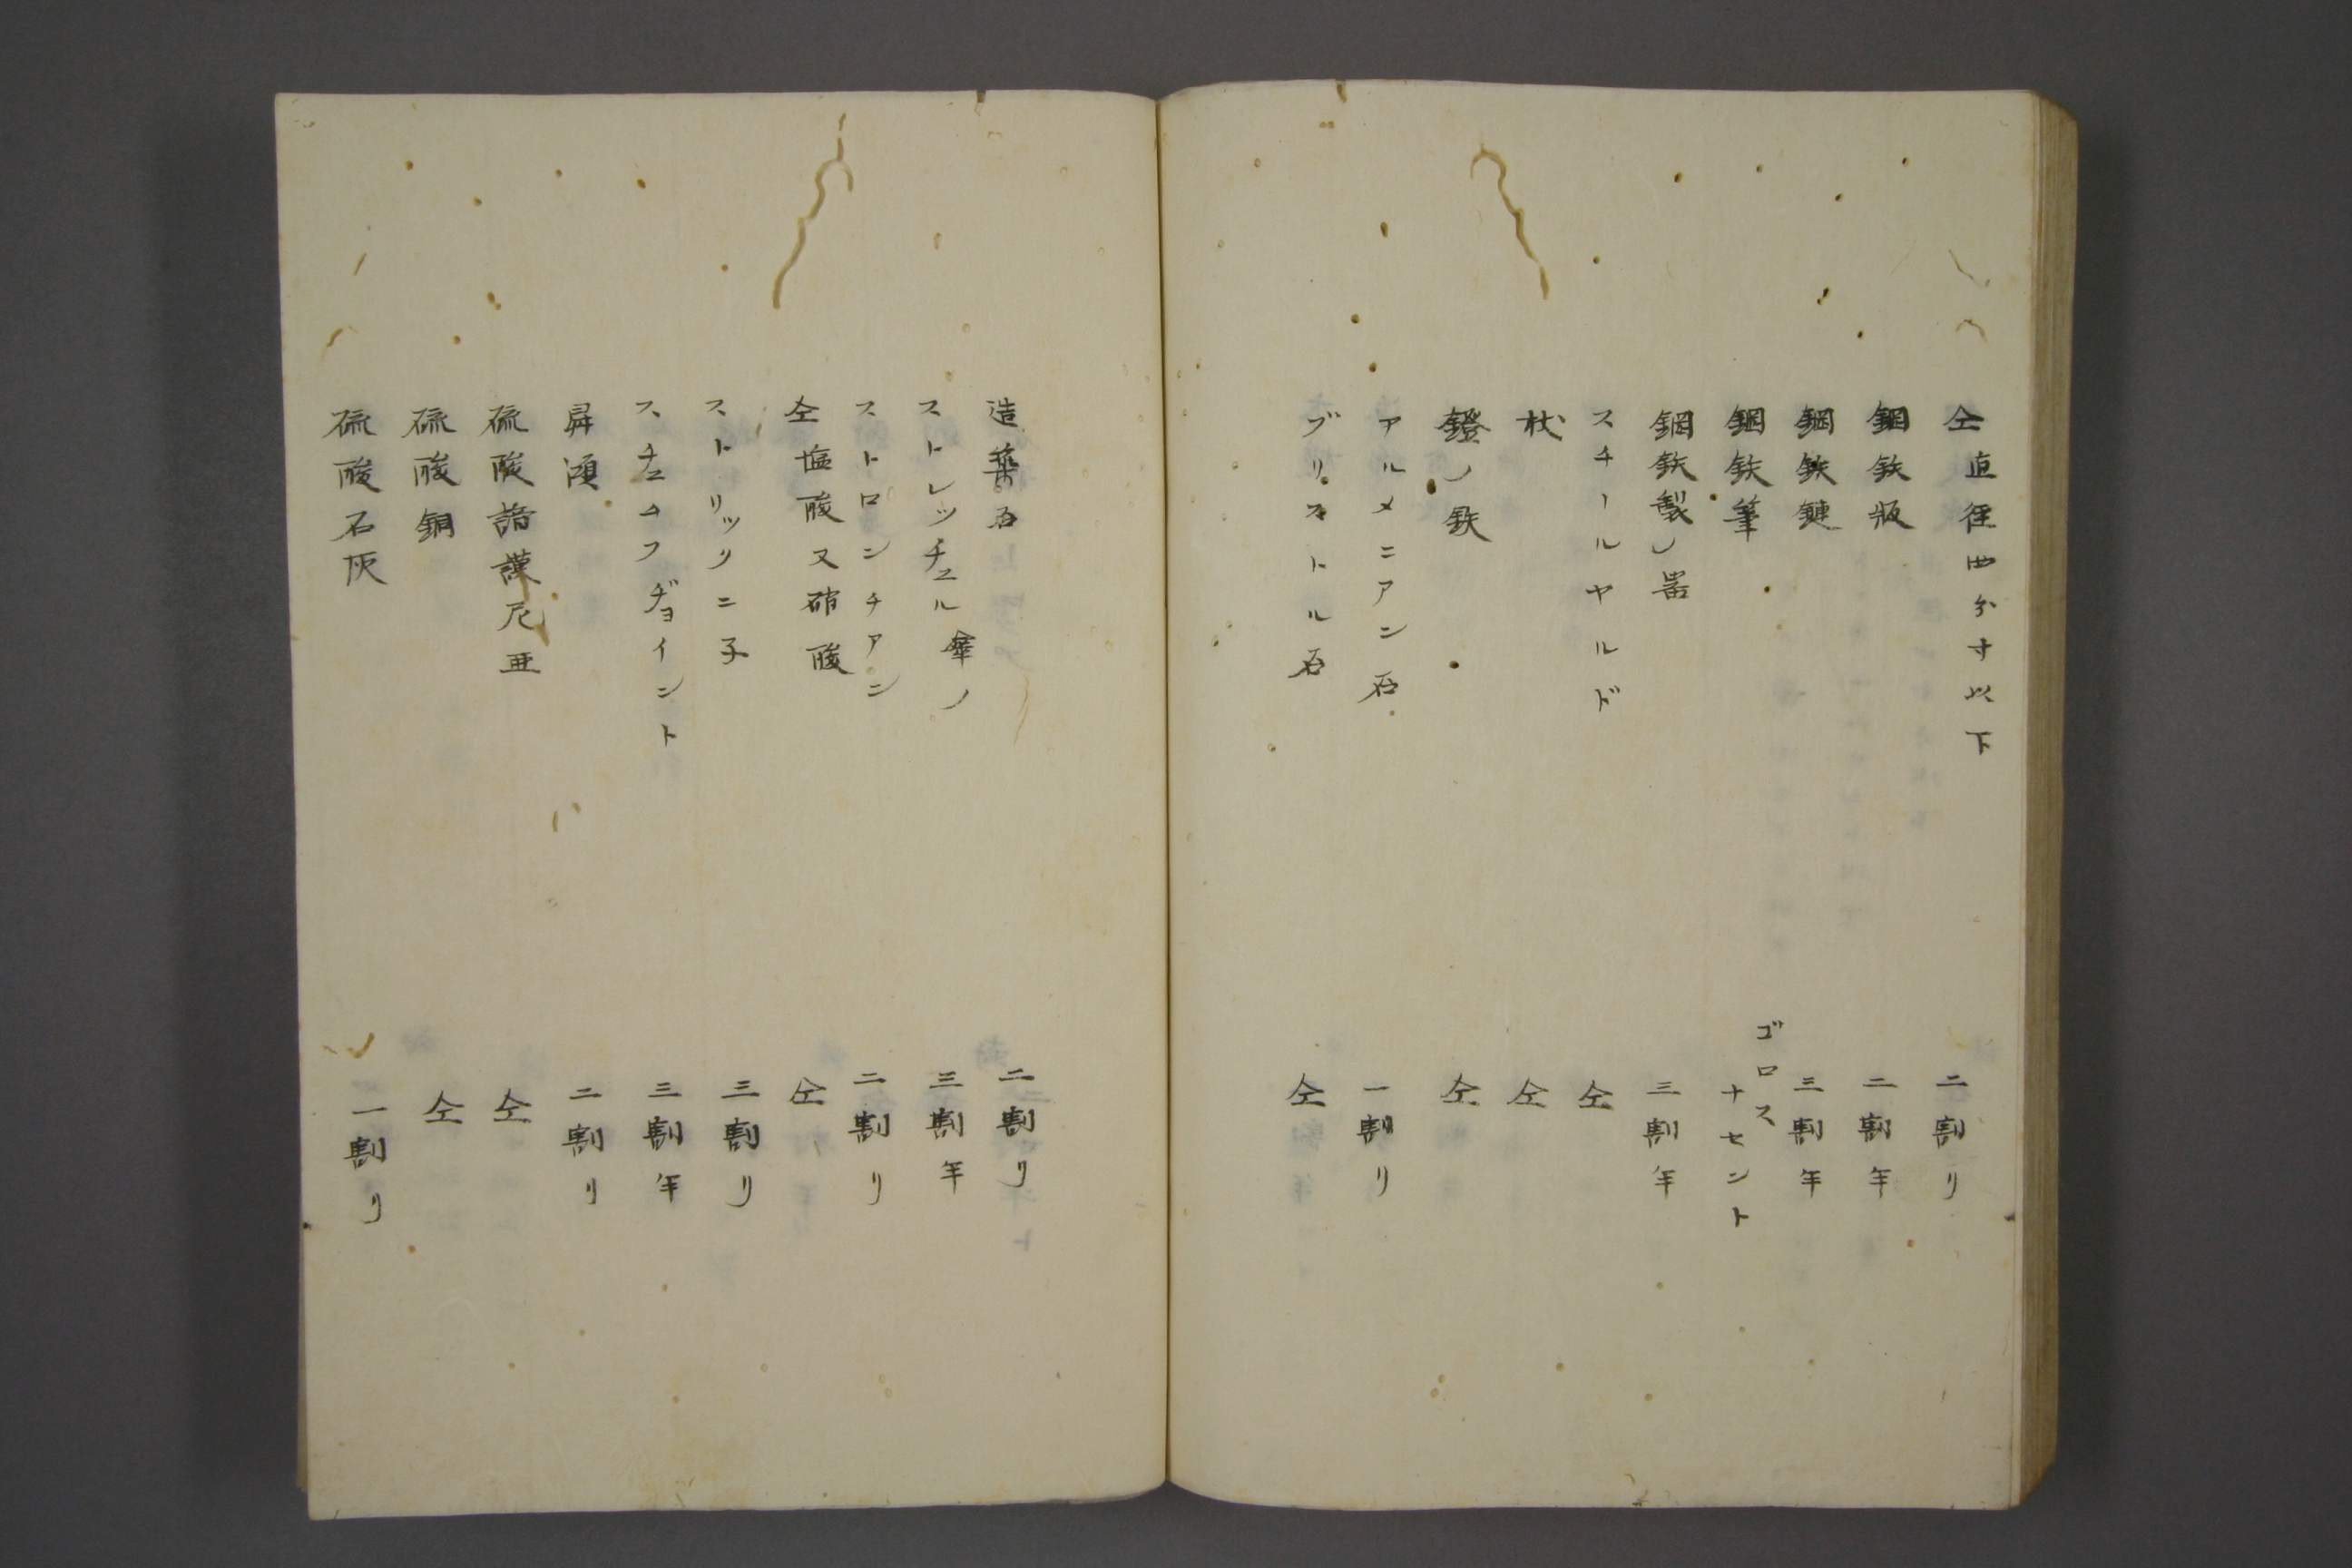 仝直徑四分寸以下　二割リ
鋼鉄版　二割半
鋼鉄鏈　三割半
鋼鉄筆　ゴロス十セント
鋼鉄製ノ器　三割半
スチールヤルド　仝
杖　仝
鐙ノ鉄　仝
アルメニアン石　一割リ
ブリストル石　仝
造築石　二割リ
ストレッチェル傘ノ　三割半
ストロンチアン　二割リ
仝塩酸又硝酸　仝
ストリッリニ子　三割リ
スチェムフヂョイント　三割半
昇汞　二割リ
硫酸諳謨尼亜　仝
硫酸銅　仝
硫酸石灰　一割リ